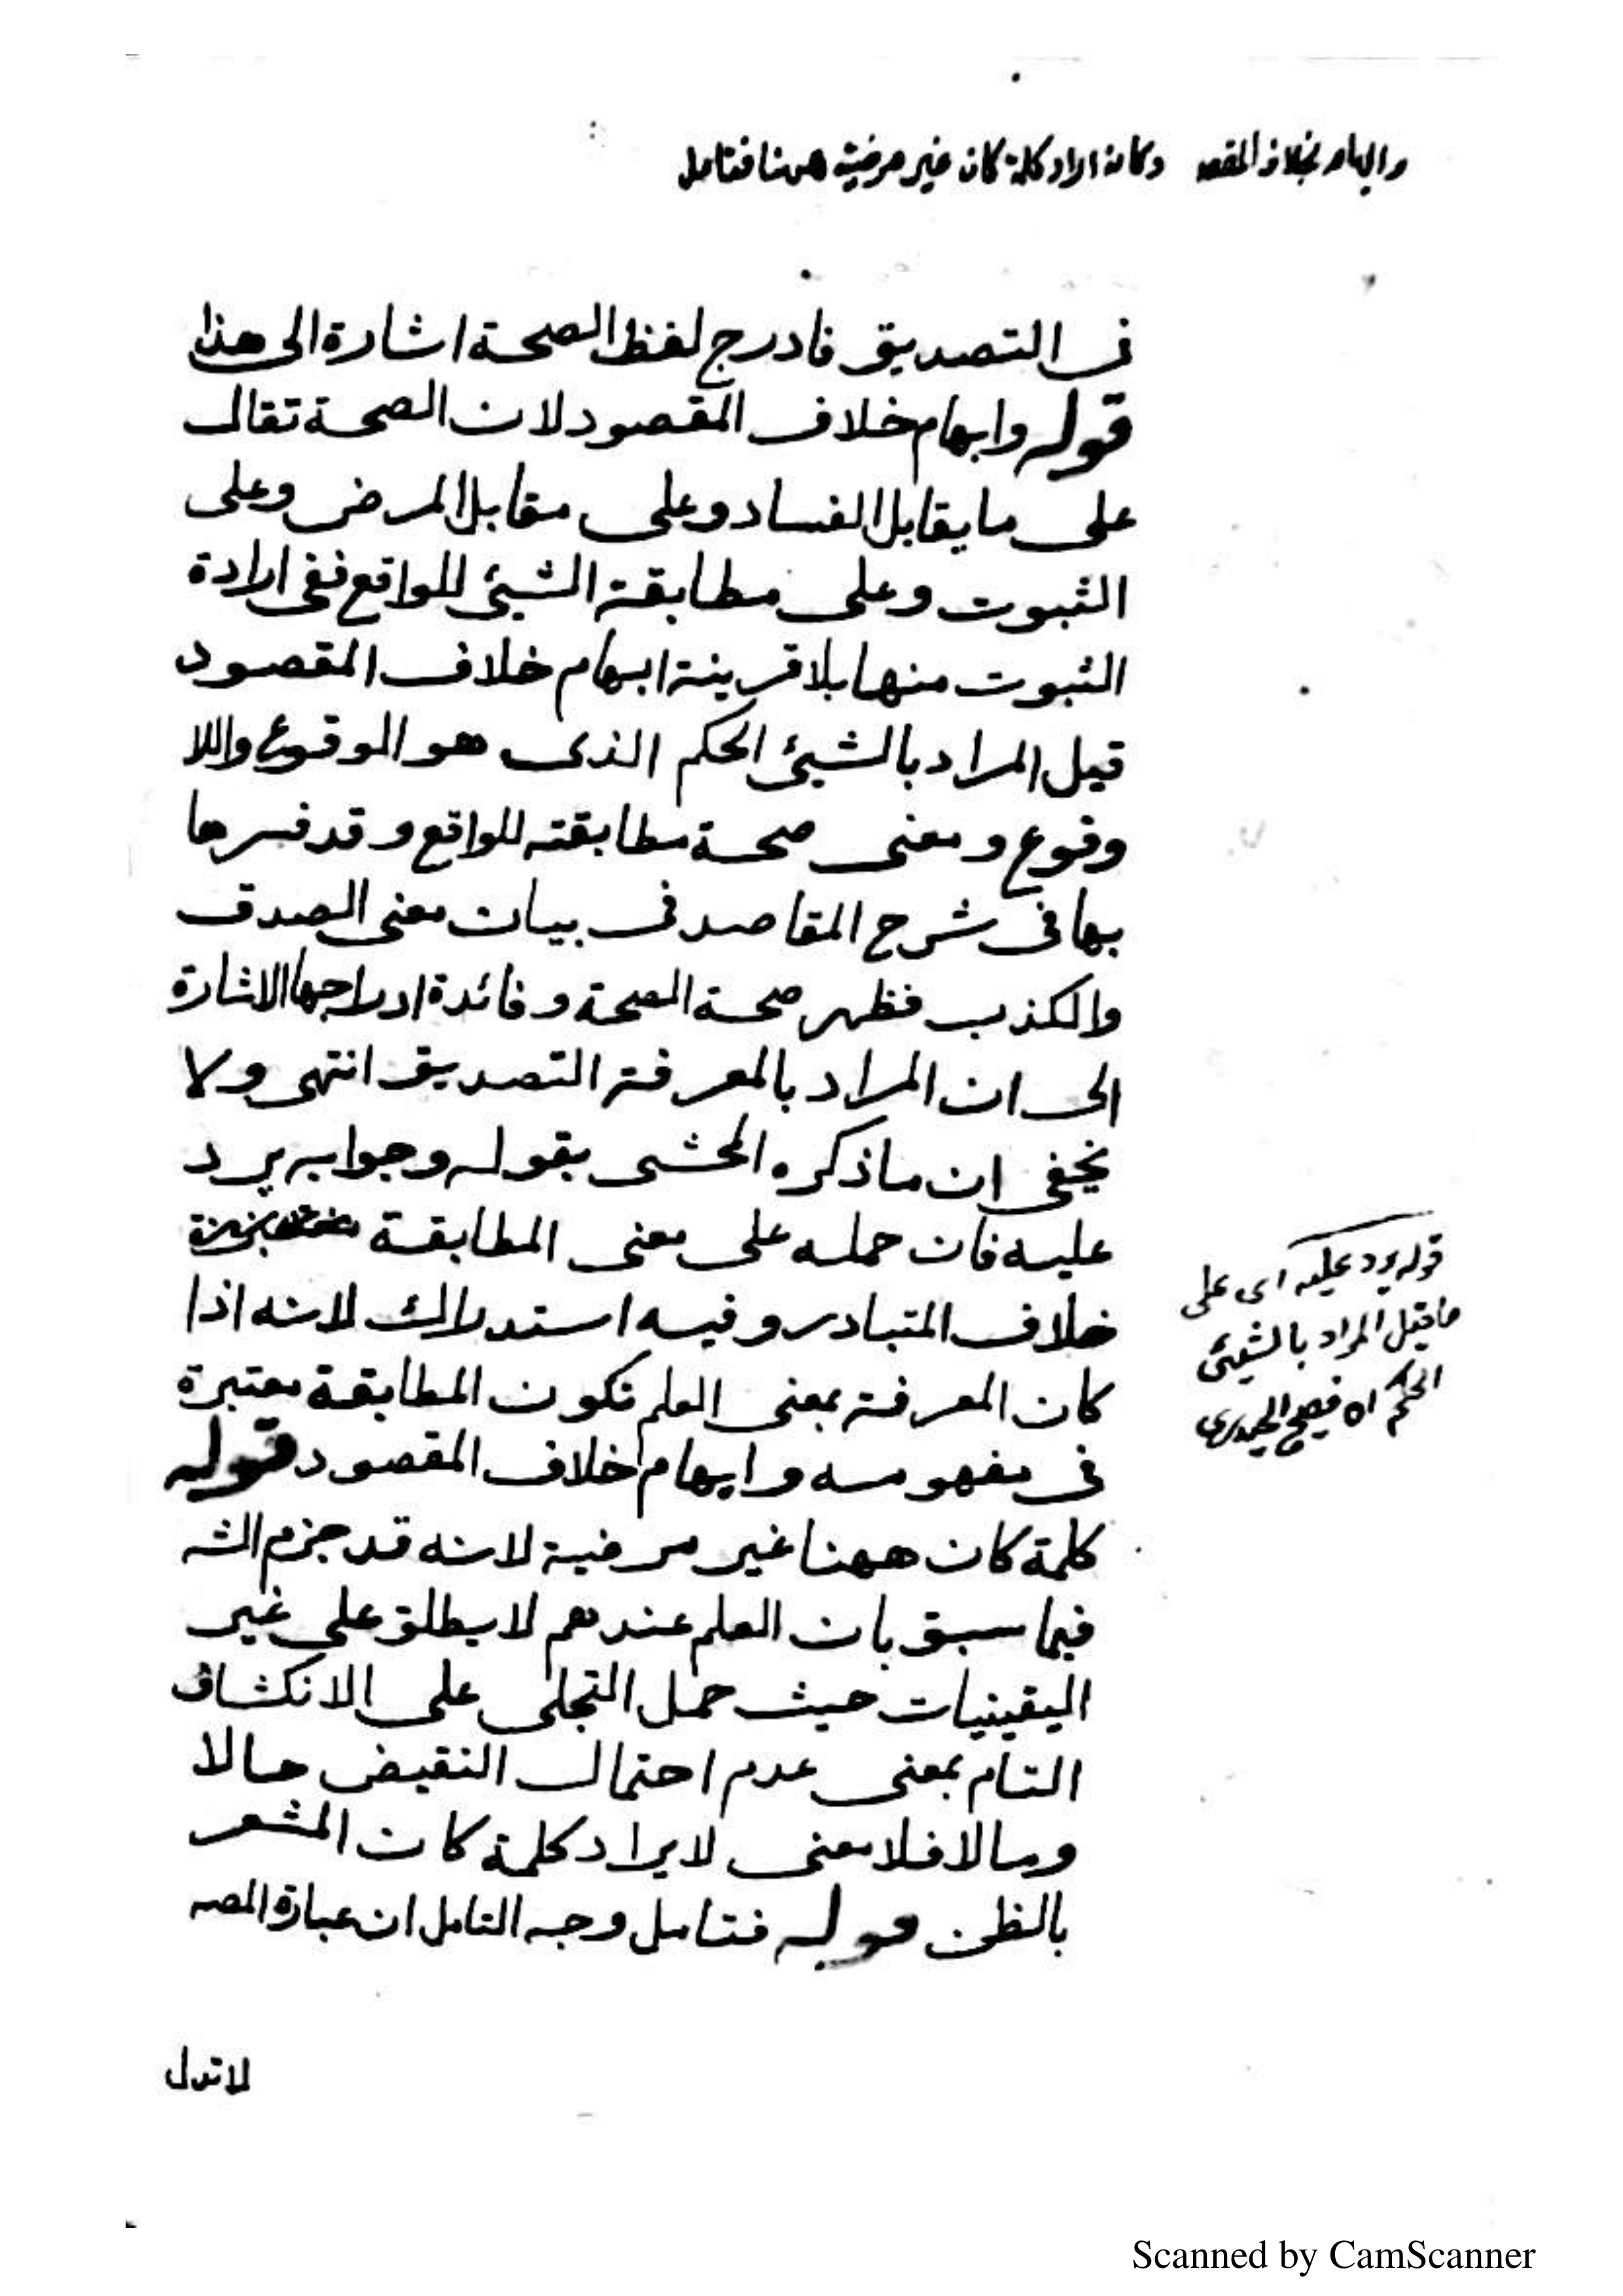 وايهام بخلاف المقصـ وكانه اراد كلمة كان غير مرضية ههنا فتامل
فى التصديق فادرج لفظ الصحة اشارة الى هذا
قوله وايهام خلاف المقصود لان الصحة تقال
على ما يقابل الفساد وعلى مقابل المرض وعلى
الثبوت وعلى مطابقة الشيئ للواقع ففى ارادة
الثبوت منها بلا قرينة ايهام خلاف المقصود
قيل المراد بالشيئ الحكم الذى هو الوقوع واللا
وقوع ومعنى صحة مطابقته للواقع وقد فسرها
بها فى شرح المقاصد فى بيان معنى الصدق
والكذب فظهر صحة الصحة وفائدة ادراجها الاشارة
الى ان المراد بالمعرفة التصديق انتهى ولا
يخفى ان ماذكره المحشى بقوله وجوابه يرد
عليه فان حمله على معنى المطابقة
خلاف المتبادر وفيه استدراك لانه اذا
كان المعرفة بمعنى العلم تكون المطابقة معتبرة
فى مفهومه وايهام خلاف المقصود قوله
كلمة كان ههنا غير مرضية لانه قد جزم الشـ
فيما سبق بان العلم عندهم لا يطلق على غير
اليقينيات حيث حمل التجلى على الانكشاف
التام بمعنى عدم احتمال النقيض حالا
ومالا فلا معنى لايراد كلمة كان المشعر
بالظن قوله فتامل وجه التامل ان عبارة المصـ
لا تدل
قوله يرد عليه اى على
ما قيل المراد بالشيئ
الحكم اه فصيح الحيدرى
Scanned by CamScanner